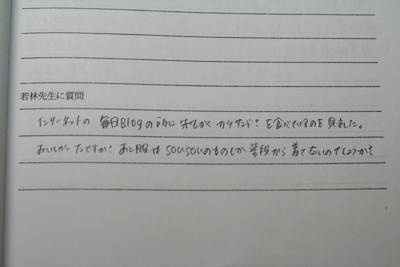 若林先生に質問
インターネットの 毎日Blogの中に 先生が カツサンド? を食べているのを 見ました。
おいしかったですか? あと服は SOU SOUのものしか 普段から 着てないのでしょうか?